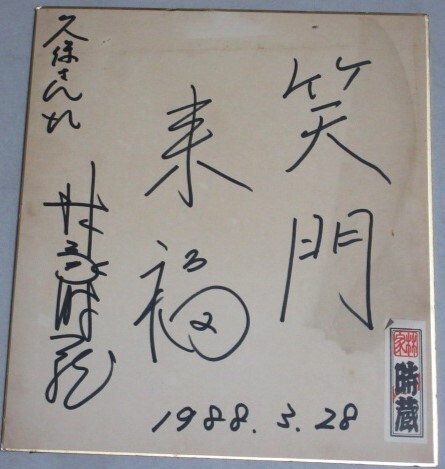 笑門
来福
久保さん江
林家時蔵
1988.3.28
林家
時蔵